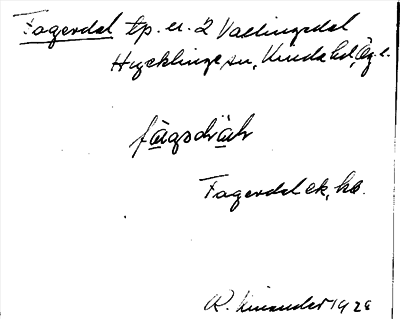 Fagerdal tp. u. 2 Vaelingedal
Hycklinge sn, Kinda hd, Ög. l.
fāgsdrāh
Fagerdal ek, ka.
R. Kinander 1928